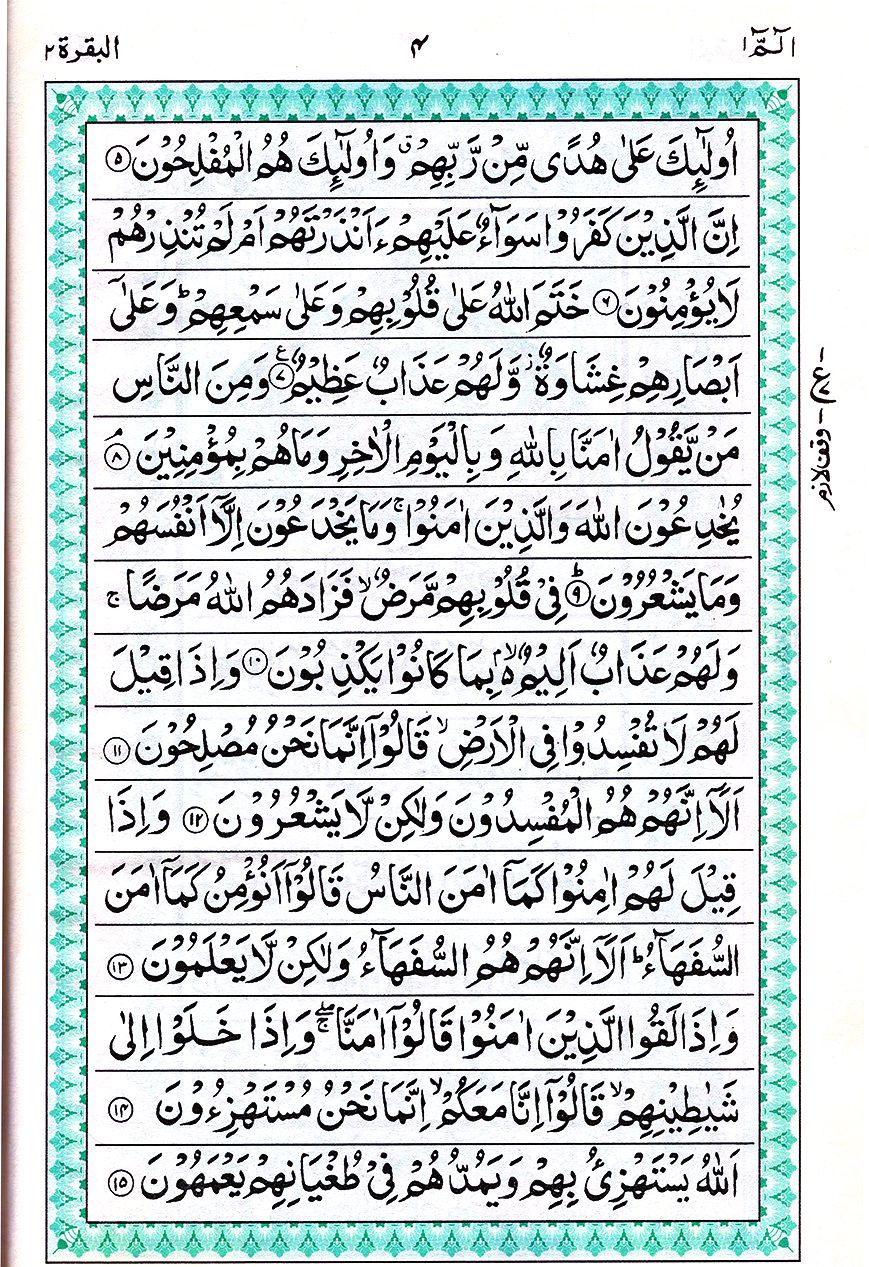 الٓـمّٓ ١ ۴ البقرة ٢
اُولٰٓئِكَ عَلٰى هُدًى مِّنْ رَّبِّهِمْ ۙق وَاُولٰٓئِكَ هُمُ الْمُفْلِحُوْنَ ﴿۵﴾
اِنَّ الَّذِيْنَ كَفَرُوْا سَوَآءٌ عَلَيْهِمْ ءَاَنْذَرْتَهُمْ اَمْ لَمْ تُنْذِرْهُمْ
لَا يُؤْمِنُوْنَ ﴿۶﴾ خَتَمَ اللّٰهُ عَلٰى قُلُوْبِهِمْ وَعَلٰى سَمْعِهِمْ ؕ وَعَلٰٓى
اَبْصَارِهِمْ غِشَاوَةٌ ؗ وَّلَهُمْ عَذَابٌ عَظِيْمٌ ﴿۷﴾ ع وَمِنَ النَّاسِ
مَنْ يَّقُوْلُ اٰمَنَّا بِاللّٰهِ وَبِالْيَوْمِ الْاٰخِرِ وَمَا هُمْ بِمُؤْمِنِيْنَ ﴿۸﴾ ۘ
يُخٰدِعُوْنَ اللّٰهَ وَالَّذِيْنَ اٰمَنُوْا ۚ وَمَا يَخْدَعُوْنَ اِلَّاۤ اَنْفُسَهُمْ
وَمَا يَشْعُرُوْنَ ﴿۹﴾ ؕ فِيْ قُلُوْبِهِمْ مَّرَضٌ ۙ فَزَادَهُمُ اللّٰهُ مَرَضًا ۚ
وَلَهُمْ عَذَابٌ اَلِيْمٌۢ ۙ۬ بِمَا كَانُوْا يَكْذِبُوْنَ ﴿۱۰﴾ وَاِذَا قِيْلَ
لَهُمْ لَا تُفْسِدُوْا فِى الْاَرْضِ ۙ قَالُوْۤا اِنَّمَا نَحْنُ مُصْلِحُوْنَ ﴿۱۱﴾
اَلَاۤ اِنَّهُمْ هُمُ الْمُفْسِدُوْنَ وَلٰكِنْ لَّا يَشْعُرُوْنَ ﴿۱۲﴾ وَاِذَا
قِيْلَ لَهُمْ اٰمِنُوْا كَمَاۤ اٰمَنَ النَّاسُ قَالُوْۤا اَنُؤْمِنُ كَمَاۤ اٰمَنَ
السُّفَهَآءُ ؕ اَلَاۤ اِنَّهُمْ هُمُ السُّفَهَآءُ وَلٰكِنْ لَّا يَعْلَمُوْنَ ﴿۱۳﴾
وَاِذَا لَقُوا الَّذِيْنَ اٰمَنُوْا قَالُوْۤا اٰمَنَّا ۖۚ وَاِذَا خَلَوْا اِلٰى
شَيٰطِيْنِهِمْ ۙ قَالُوْۤا اِنَّا مَعَكُمْ ۙ اِنَّمَا نَحْنُ مُسْتَهْزِءُوْنَ ﴿۱۴﴾
اَللّٰهُ يَسْتَهْزِئُ بِهِمْ وَيَمُدُّهُمْ فِيْ طُغْيَانِهِمْ يَعْمَهُوْنَ ﴿۱۵﴾
وقف لازم